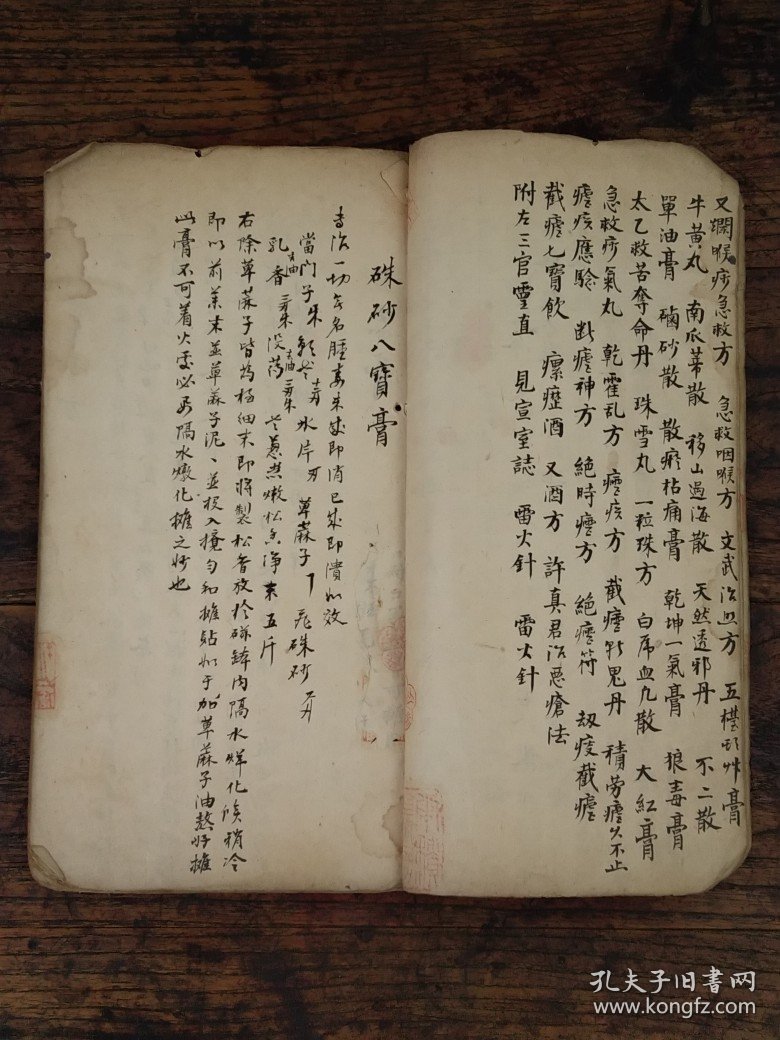 又爛喉痧急救方 急救咽喉方 文武治血方 五
牛黄丸 南瓜蒂散 移山過海散 天然透邪丹 不二散
單油膏 硇砂散 散瘀枯痛膏 乾坤一氣膏 狼毒膏
太乙救苦奪命丹 珠雪丸 一粒珠方 白席血九散 大紅膏
急救痧氣丸 乾霍乱方 瘧疾方 截瘧斬鬼丹 積勞瘧久不止
瘧疾應驗 断瘧神方 絕時瘧方 絕瘧符 截瘧
截瘧七寳飲 瘰癧酒 又酒方 許真君治惡瘡法
附左三官靈直 見宣室誌 雷火針 雷火针
硃砂八寳膏
治一切無名腫毒未成即消已成即潰如效
當門子 冰片 草蔴子 飛硃砂
乳香 去油 没药 去油 葱煮嫩松香净末五斤
右除草蔴子皆為極細末即將製松香放於磁鉢内隔水烊化候稍冷
即以前葯末並草蔴子泥、並投入攪匀和攤貼如干加草蔴子油熬好攤
此膏不可着火要必要隔水燉化攤之妙也
孔夫子旧书网
www.kongfz.com